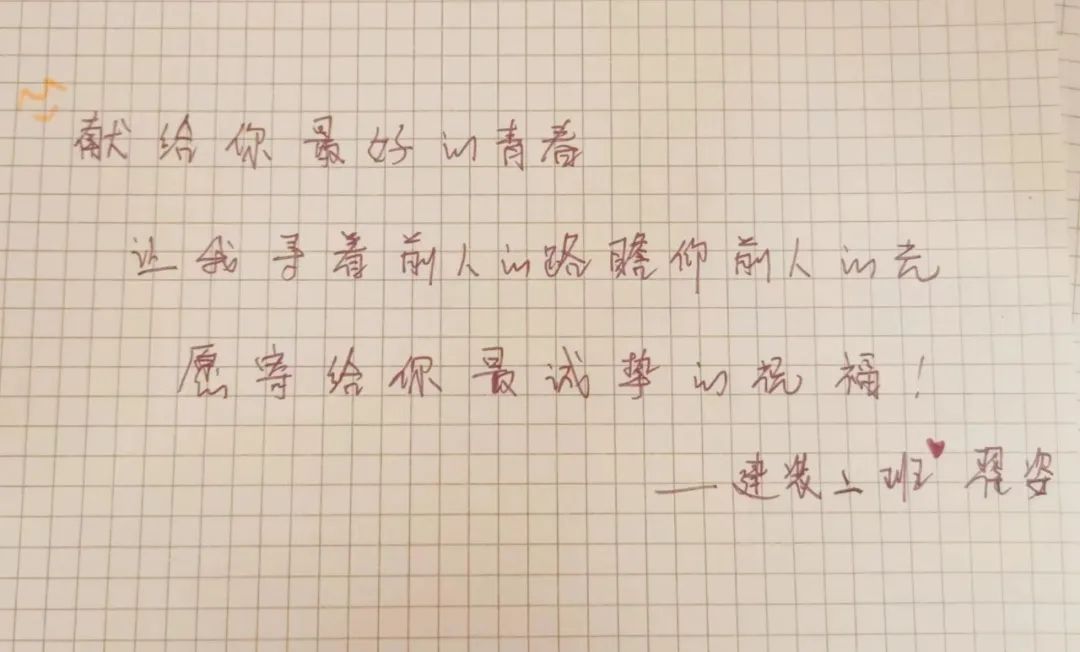 献给你最好的青春
让我寻着前人的路瞻仰前人的光
愿寄给你最诚挚的祝福！
——建装二班 翟姿